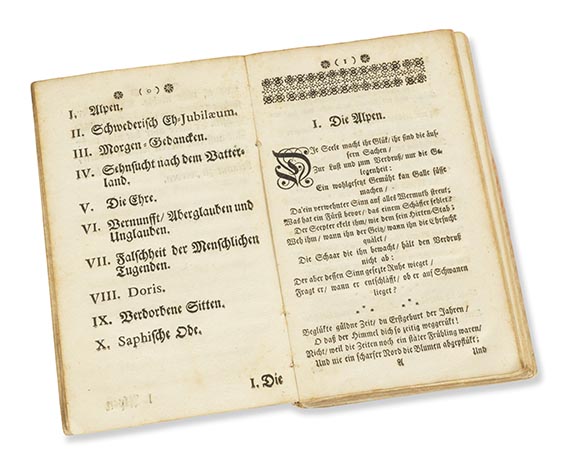 (0)
I. Alpen.
II. Schwederisch Eh-Jubilæum.
III. Morgen-Gedancken.
IV. Sehnsucht nach dem Vatter-
land.
V. Die Ehre.
VI. Vernunfft/ Aberglauben und
Unglauben.
VII. Falschheit der Menschlichen
Tugenden.
VIII. Doris.
IX. Verdorbene Sitten.
X. Saphische Ode.
I. Die
(1)
I. Die Alpen.
DJe Seele macht ihr Glük/ ihr sind die äus-
sern Sachen/
Zur Lust und zum Verdruß/ nur die Ge-
legenheit:
Ein wohlgesezt Gemüht kan Galle süsse
machen/
Da'ein verwehnter Sinn auf alles Wermuth streut;
Was hat ein Fürst bevor/ das einem Schäfer fehlet?
Der Scepter eckelt ihm/ wie dem sein Hirten-Stab;
Weh ihm/ wann ihn der Geitz/ wann ihn die Ehrsucht
quälet/
Die Schaar die ihn bewacht/ hält den Verdruß
nicht ab:
Der aber dessen Sinn gesezte Ruhe wieget/
Fragt er/ wann er entschläfft/ ob er auf Schwanen
lieget?
Beglükte güldne Zeit/ du Erstgeburt der Jahren/
O daß der Himmel dich so zeitig weggerükt!
Nicht/ weil die Zeiten noch ein stäter Frühling waren/
Und nie ein scharfer Nord die Blumen abgepflükt;
A Und